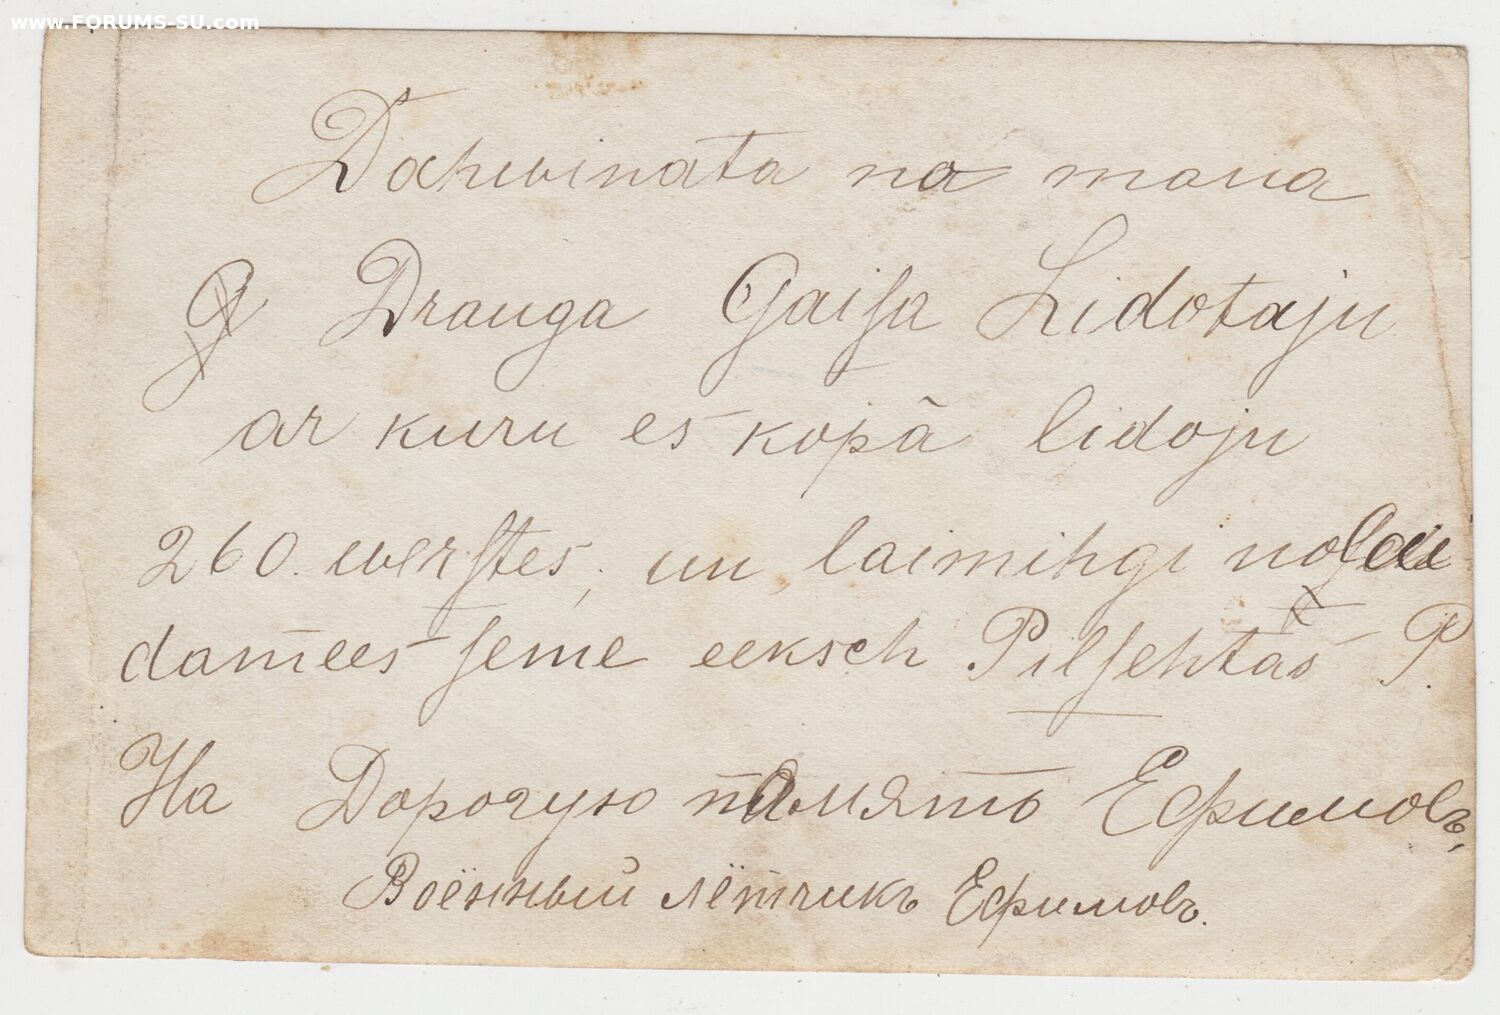 www.FORUMS-SU.com
Dahwinata no mana
Drauga Gaiſa Lidotaju
ar kuru es kopâ lidoju
260. werſtes, un laimihgi
damees ſeme eeksch Pilſehtas P.
На Дорогую память Ефимовъ,
Воённый лётчикъ Ефимовъ.